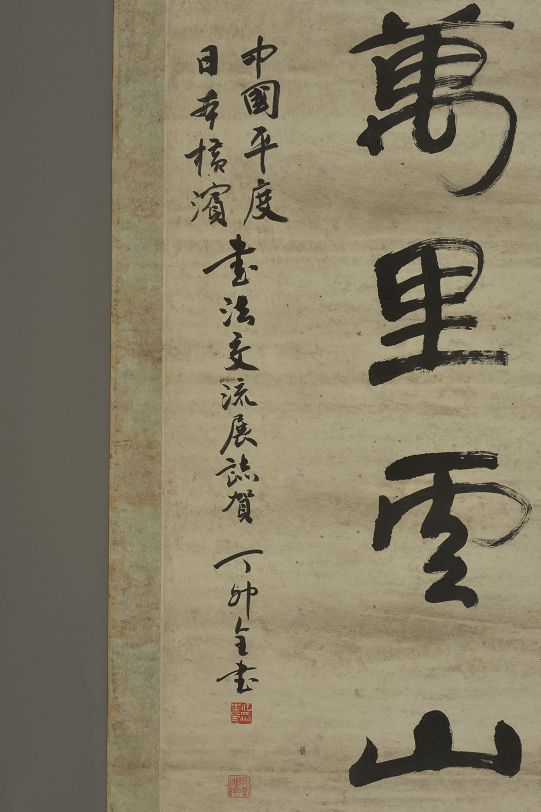 萬里雲山
中國平度
日本橫濱
書法交流展誌賀
丁卯全書